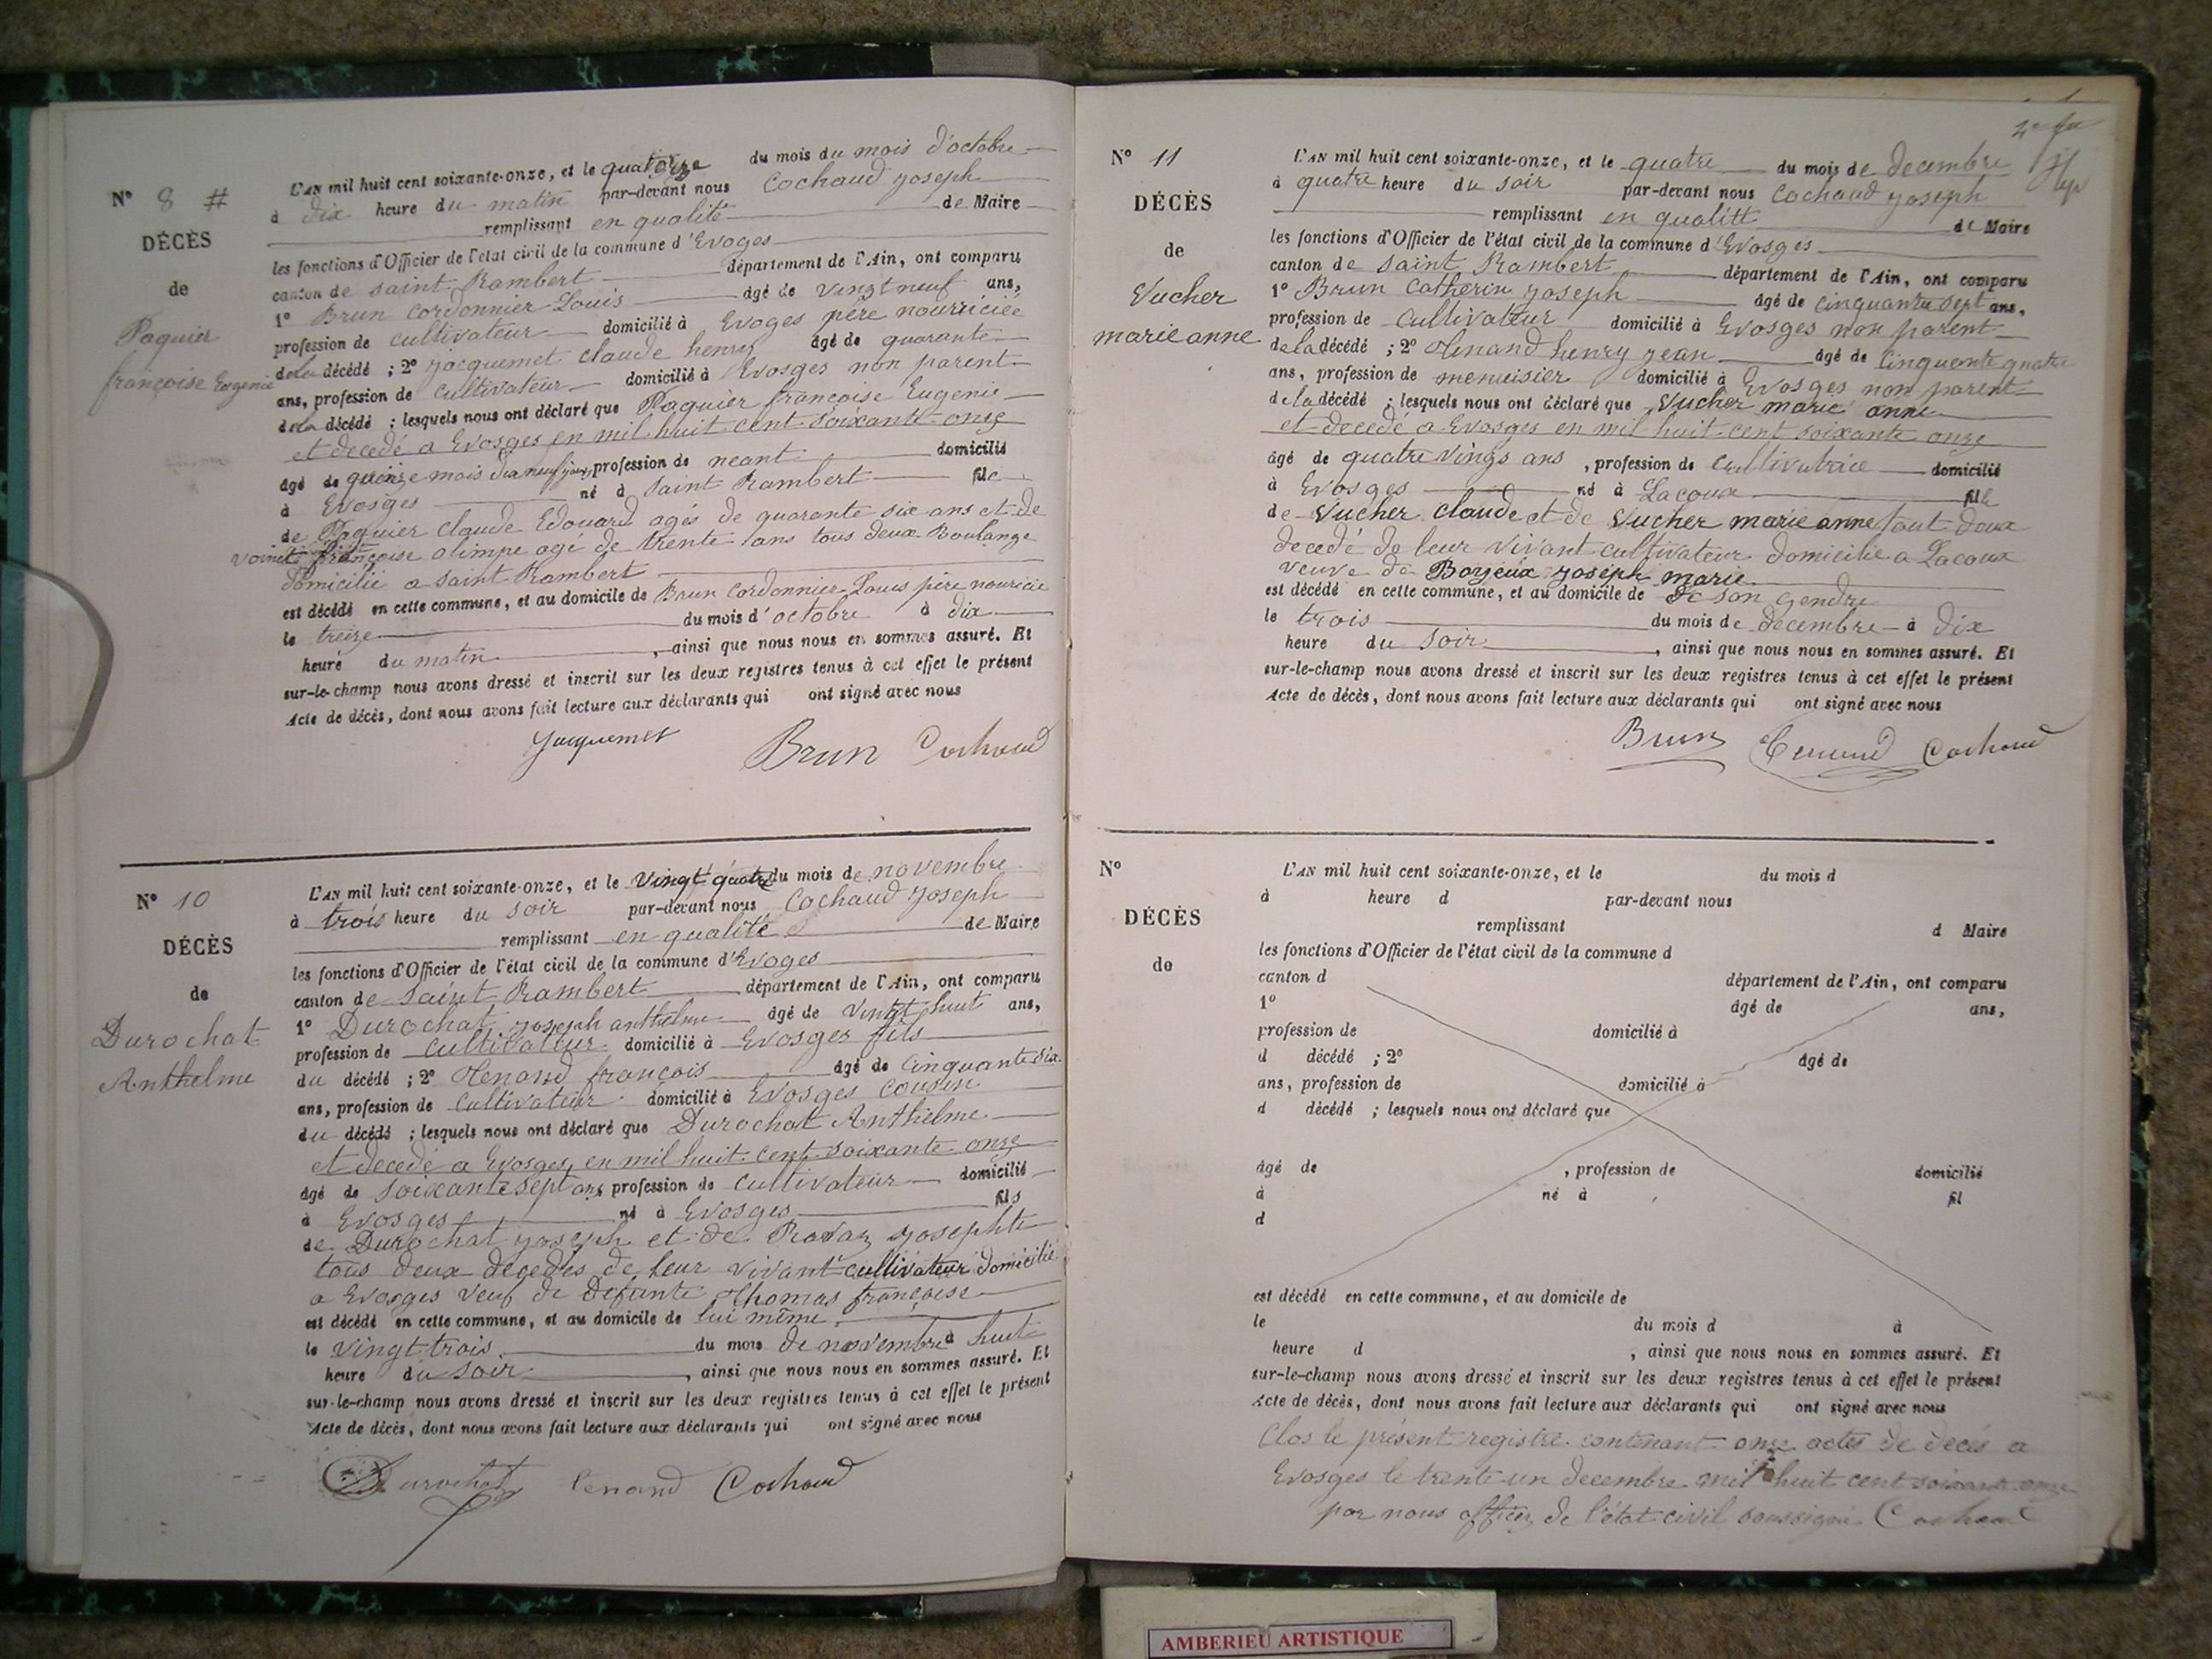 N° 8 #
DÉCÈS
de
Paquier
françoise Eugenie
L'AN mil huit cent soixante-onze, et le quatorze du mois du mois d'octobre
à dix heure du matin par-devant nous Cochaud joseph
remplissant en qualité de Maire
les fonctions d'Officier de l'état civil de la commune d'Evoges
canton de saint Rambert département de l'Ain, ont comparu
1° Brun Cordonnier Louis âgé de vingt neuf ans,
profession de cultivateur domicilié à Evoges père nourriciée
de la décédé ; 2° jacquemet claude henry âgé de quarante
ans, profession de cultivateur domicilié à Evosges non parent
de la décédé ; lesquels nous ont déclaré que Paquier françoise Eugenie
et decedé a Evosges en mil huit cent soixante onze
âgé de quinze mois dix neuf jours, profession de neant domicilié
à Evosges né à Saint Rambert file
de Paquier claude Edouard agés de quarante six ans et de
Voinet françoise olimpe agé de trente ans tous deux Boulange
domicilié a saint Rambert
est décédé en cette commune, et au domicile de Brun Cordonnier Louis père nouricie
le treize du mois d'octobre à dix
heure du matin, ainsi que nous nous en sommes assuré. Et
sur-le-champ nous avons dressé et inscrit sur les deux registres tenus à cet effet le présent
Acte de décès, dont nous avons fait lecture aux déclarants qui ont signé avec nous
Jacquemet Brun Cochaud
N° 10
DÉCÈS
de
Durochat
Anthelme
L'AN mil huit cent soixante-onze, et le Vingt quatre du mois de novembre
à trois heure du soir par-devant nous Cochaud joseph
remplissant en qualité de Maire
les fonctions d'Officier de l'état civil de la commune d'Evoges
canton de Saint Rambert département de l'Ain, ont comparu
1° Durochat joseph anthelme âgé de Vingt huit ans,
profession de cultivateur domicilié à Evosges fils
du décédé ; 2° Henand françois âgé de Cinquante six
ans, profession de cultivateur domicilié à Evosges cousin
du décédé ; lesquels nous ont déclaré que Durochat Anthelme
et decedé a Evosges en mil huit cent soixante onze
âgé de soixante sept ans, profession de cultivateur domicilié
à Evosges né à Evosges fils
de Durochat joseph et de Ravaz josephte
tous deux decedés de leur vivant cultivateur domicilié
a Evosges veuf de Defunte Thomas françoise
est décédé en cette commune, et au domicile de lui même
le vingt trois du mois de novembre à huit
heure du soir, ainsi que nous nous en sommes assuré. Et
sur-le-champ nous avons dressé et inscrit sur les deux registres tenus à cet effet le présent
Acte de décès, dont nous avons fait lecture aux déclarants qui ont signé avec nous
Durochat henand Cochaud
N° 11
DÉCÈS
de
Vucher
marie anne
L'AN mil huit cent soixante-onze, et le quatre du mois de decembre
à quatre heure du soir par-devant nous Cochaud joseph
remplissant en qualitt de Maire
les fonctions d'Officier de l'état civil de la commune d'Evosges
canton de Saint Rambert département de l'Ain, ont comparu
1° Brun Catherin joseph âgé de cinquante sept ans,
profession de Cultivateur domicilié à Evosges non parent
de la décédé ; 2° Henand henry jean âgé de Cinquente quatre
ans, profession de menuisier domicilié à Evosges non parent
de la décédé ; lesquels nous ont déclaré que Vucher marie anne
et decedé a Evosges en mil huit cent soixante onze
âgé de quatre vings ans, profession de cultivatrice domicilié
à Evosges né à Lacoux file
de Vucher claude et de Vucher marie anne tout deux
decedé de leur vivant cultivateur domicilié a Lacoux
veuve de Borjeux joseph marie
est décédé en cette commune, et au domicile de de son gendre
le trois du mois de decembre à dix
heure du soir, ainsi que nous nous en sommes assuré. Et
sur-le-champ nous avons dressé et inscrit sur les deux registres tenus à cet effet le présent
Acte de décès, dont nous avons fait lecture aux déclarants qui ont signé avec nous
Brun henand Cochaud
N°
DÉCÈS
de
L'AN mil huit cent soixante-onze, et le du mois d
à heure d par-devant nous
remplissant d Maire
les fonctions d'Officier de l'état civil de la commune d
canton d département de l'Ain, ont comparu
1° âgé de ans,
profession de domicilié à
d décédé ; 2° âgé de
ans, profession de domicilié à
d décédé ; lesquels nous ont déclaré que
âgé de , profession de domicilié
à né à fil
d
est décédé en cette commune, et au domicile de
le du mois d à
heure d , ainsi que nous nous en sommes assuré. Et
sur-le-champ nous avons dressé et inscrit sur les deux registres tenus à cet effet le présent
Acte de décès, dont nous avons fait lecture aux déclarants qui ont signé avec nous
Clos le présent registre contenant onze actes de decés a
Evosges le trente un decembre mil huit cent soixante onze
par nous officier de l'état civil soussigné Cochaud
AMBERIEU ARTISTIQUE